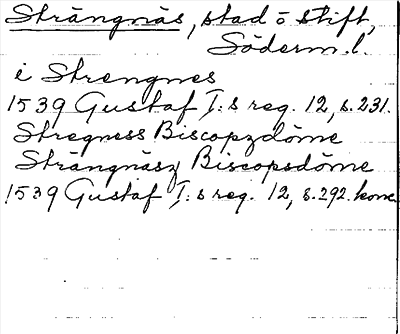 Strängnäs, stad o stift,
Söderm.l.
i Strengnes
1539 Gustaf I:s reg. 12, s.231.
Stregness Biscopzdöme
Strängnäsz Biscopsdöme
1539 Gustaf I:s reg. 12, s.292. konc